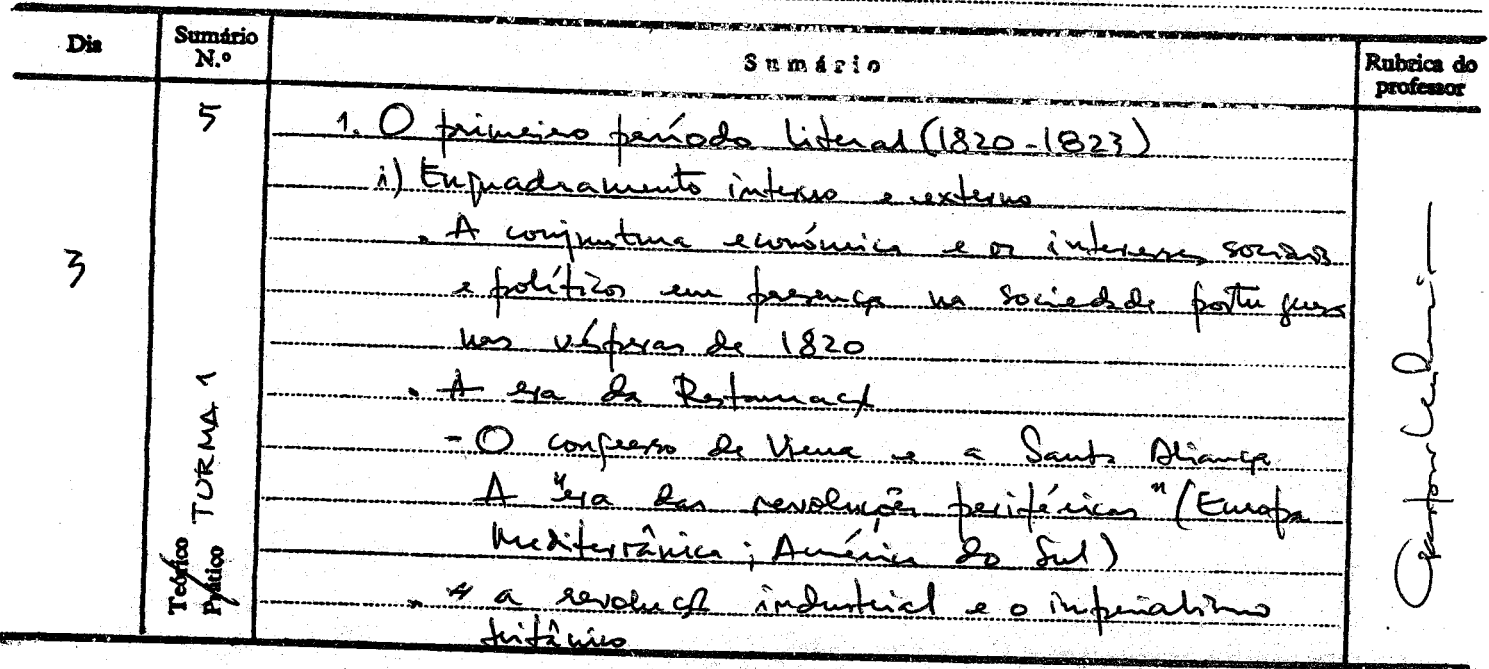 Dia
Sumário N.º
Sumário
Rubrica do professor
5
3
TURMA 1
Teórico
Prático
1. O primeiro período liberal (1820-1823)
i) Enquadramento interno e externo
. A conjuntura económica e os interesses sociais
e políticos em presença na sociedade portuguesa
nas vésperas de 1820
. A era da Restauração
- O congresso de Viena e a Santa Aliança
A "era das revoluções periféricas" (Europa
Mediterrânica; América do Sul)
. a revolução industrial e o imperialismo
britânico